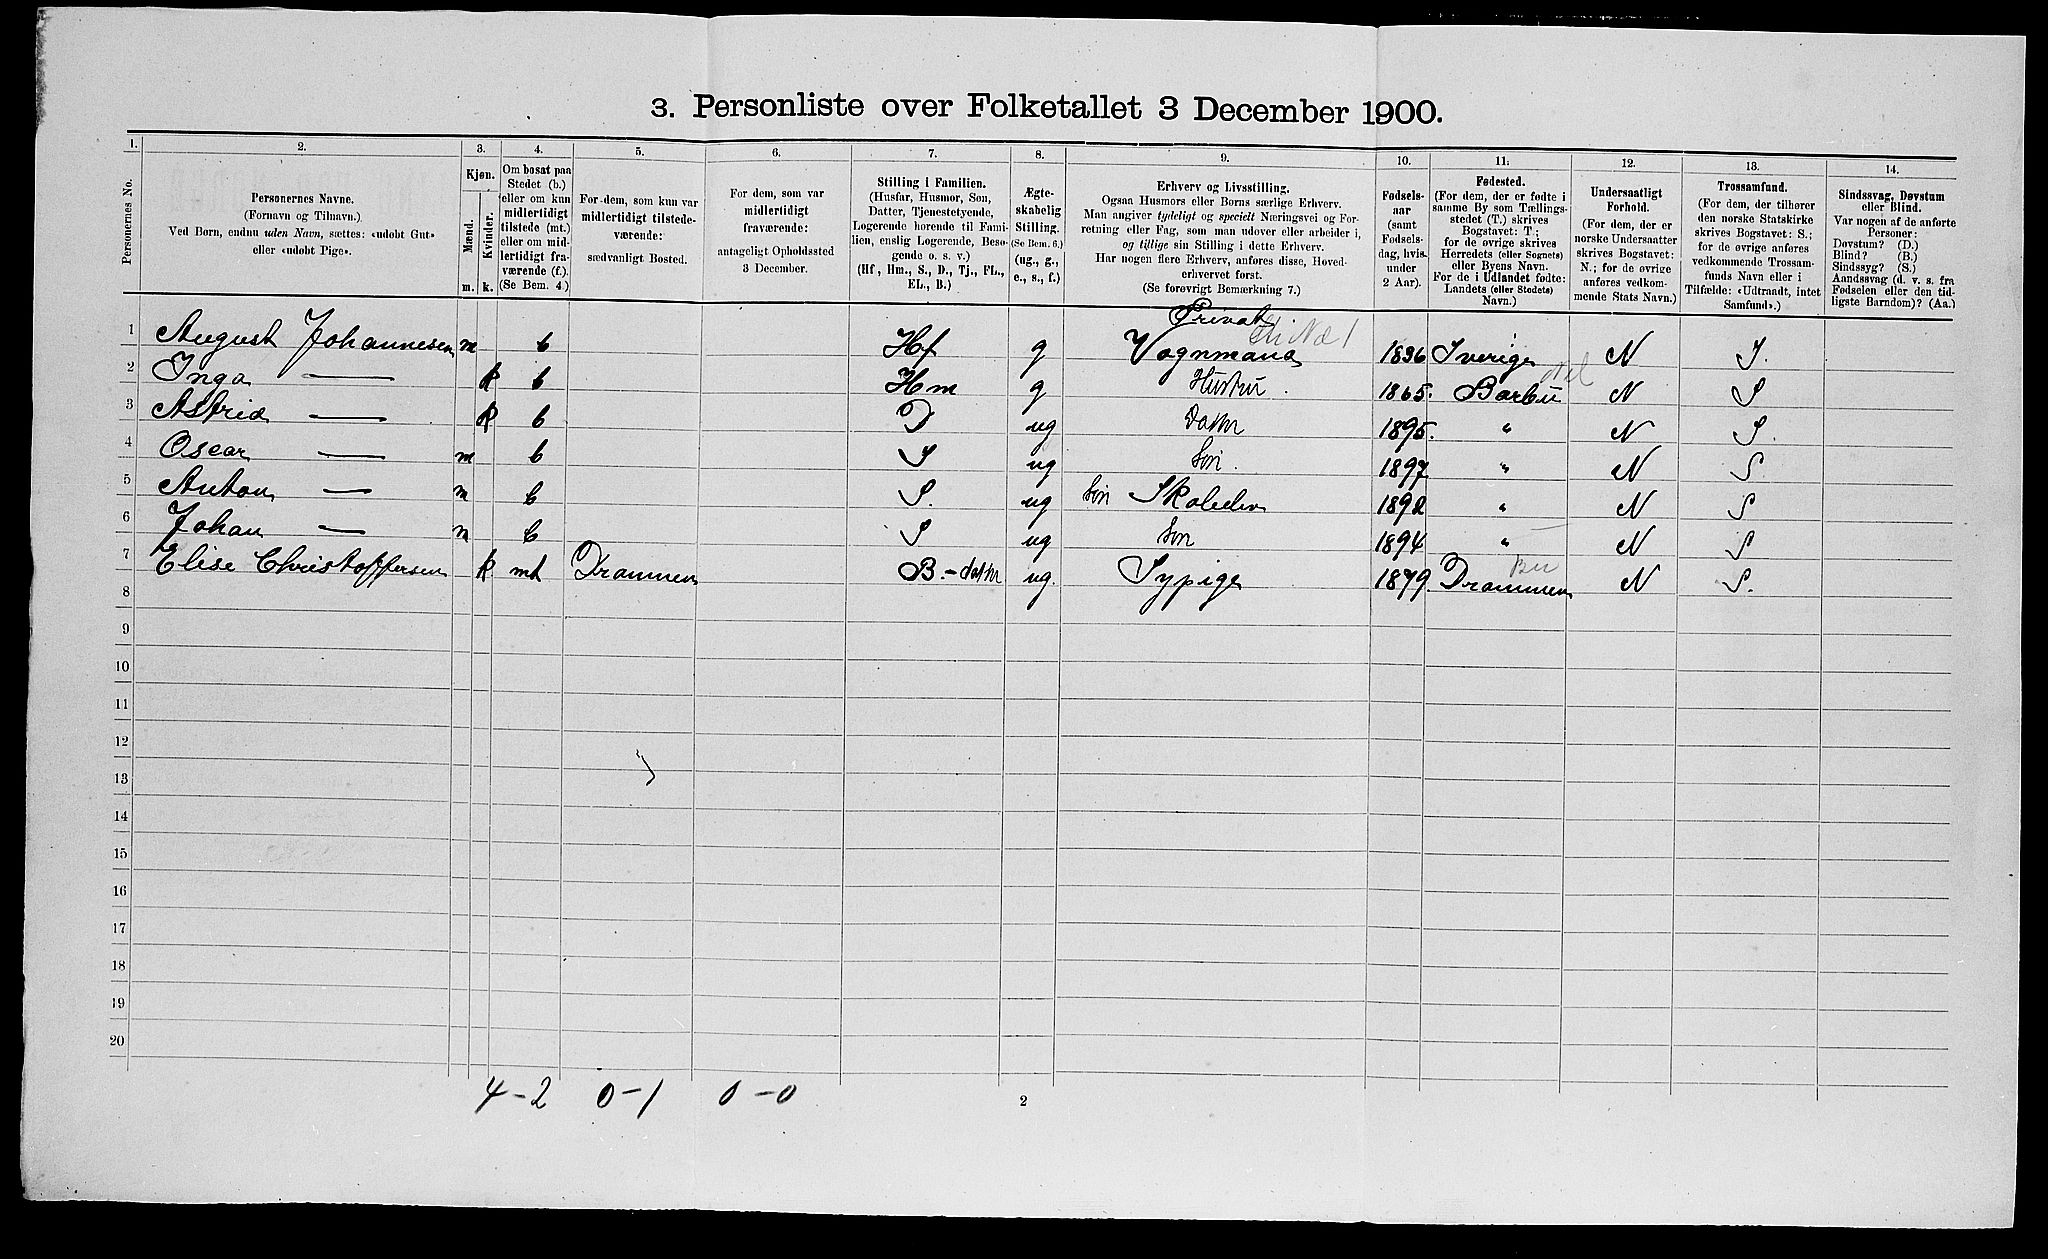 3. Personliste over Folketallet 3 December 1900.
1. 2. 3. 4. 5. 6. 7. 8. 9. 10. 11. 12. 13. 14.
Personernes No.
Personernes Navne.
(Fornavn og Tilnavn.)
Ved Børn, endnu uden Navn, sættes: «udøbt Gut»
eller «udøbt Pige».
Kjøn.
Mænd.
Kvinder.
m. k.
Om bosat paa
Stedet (b.)
eller om kun
midlertidigt
tilstede (mt.)
eller om mid-
lertidigt fra-
værende (f.).
(Se Bem. 4.)
For dem, som kun var
midlertidigt tilstede-
værende:
sædvanligt Bosted.
For dem, som var
midlertidigt
fraværende:
antageligt Opholdssted
3 December.
Stilling i Familien.
(Husfar, Husmor, Søn,
Datter, Tjenestetyende,
Logerende hørende til Fami-
lien, enslig Logerende, Besø-
gende o. s. v.)
(Hf, Hm., S., D., Tj., FL.,
EL., B.)
Ægte-
skabelig
Stilling.
(Se Bem. 6.)
(ug., g.,
e., s., f.)
Erhverv og Livsstilling.
Ogsaa Husmors eller Børns særlige Erhverv.
Man angiver tydeligt og specielt Næringsvei og For-
retning eller Fag, som man udøver eller arbeider i,
og tillige sin Stilling i dette Erhverv.
Har nogen flere Erhverv, anføres disse, Hoved-
erhvervet først.
(Se forøvrigt Bemærkning 7.)
Fødsels-
aar
(samt
Fødsels-
dag, hvis
under
2 Aar).
Fødested.
(For dem, der er fødte i
samme By som Tællings-
stedet (T.) skrives
Bogstavet: T.;
for de øvrige skrives
Herredets (eller Sognets)
eller Byens Navn.
For de i Udlandet fødte:
Landets (eller Stedets)
Navn.)
Undersaatligt
Forhold.
(For dem, der er
norske Undersaatter
skrives Bogstavet:
N.; for de øvrige
anføres vedkom-
mende Stats Navn.)
Trossamfund.
(For dem, der tilhører
den norske Statskirke
skrives Bogstavet: S.;
for de øvrige anføres
vedkommende Trossam-
funds Navn eller i
Tilfælde: «Udtraadt, intet
Samfund».)
Sindssvag, Døvstum
eller Blind.
Var nogen af de anførte
Personer:
Døvstum? (D.)
Blind? (B.)
Sindssyg? (S.)
Aandssvag (d. v. s. fra
Fødselen eller den tid-
ligste Barndom)? (Aa.)
Privat
1 August Johannesen m b Hf g Vognmand 1836 Sverige N S.
2 Inga — k b Hm g Hustru. 1865. Barbu N S
3 Astrid — k b D ug Datter 1895. " N S.
4 Oscar — m b S ug Søn. 1897 " N S
5 Anton — m b S. ug Søn Skoleelev 1892 " N S
6 Johan — m b S ug Søn 1894 " N S
7 Elise Christoffersen k. mt Drammen B. - datter ug. Sypige 1879. Drammen N S.
8
9
10
11
12
13
14
15
16
17
18
19
20
4-2 0-1 0-0
2